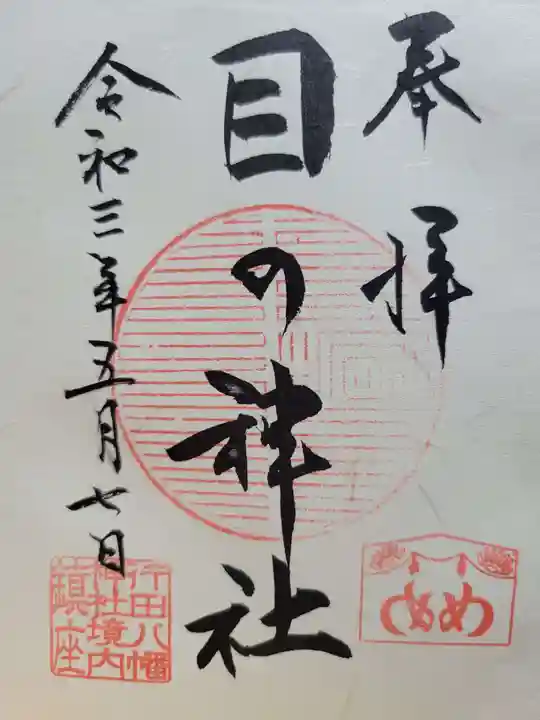 奉拝
目の神社
令和三年五月七日
行田八幡
神社境内
鎮座
め